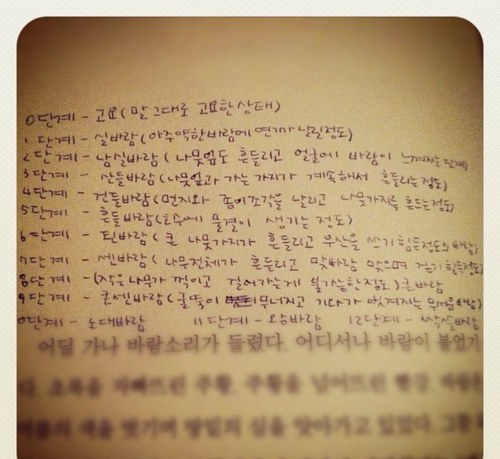 0단계 - 고요(말 그대로 고요한 상태)
1단계 - 실바람(아주약한바람에 연기가 날릴정도)
2단계 - 남실바람(나뭇잎도 흔들리고 얼굴에 바람이 느껴지는 단계)
3단계 - 산들바람(나뭇잎과 가는 가지가 계속해서 흔들리는정도)
4단계 - 건들바람(먼지와 종이조각을 날리고 나뭇가지를 흔드는정도)
5단계 - 흔들바람(호수에 물결이 생기는 정도)
6단계 - 된바람(큰 나뭇가지가 흔들리고 우산을 쓰기 힘든정도의 바람)
7단계 - 센바람(나무전체가 흔들리고 맞바람 맞으며 걷기 힘든정도)
8단계 - (작은 나무가 꺾이고 걸어가는게 불가능한정도)큰바람
9단계 - 큰센바람(굴뚝이 무너지고 기와가 벗겨지는 바람)
0단계 - 노대바람 11단계 - 왕바람 12단계 - 싹쓸바람
어딜 가나 바람소리가 들렸다. 어디서나 바람이 불었기
다. 초록을 자빠뜨린 주황, 주황을 넘어뜨린 빨강, 바람은